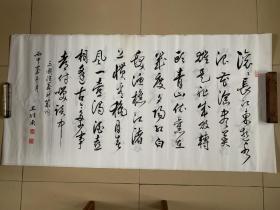 滚滚长江东逝水
浪花淘尽英
雄是非成败转
头青山依旧在
几度夕阳红白
发渔樵江渚
上惯看秋月春
风一壶浊酒喜
相逢古今多少事
都付笑谈中